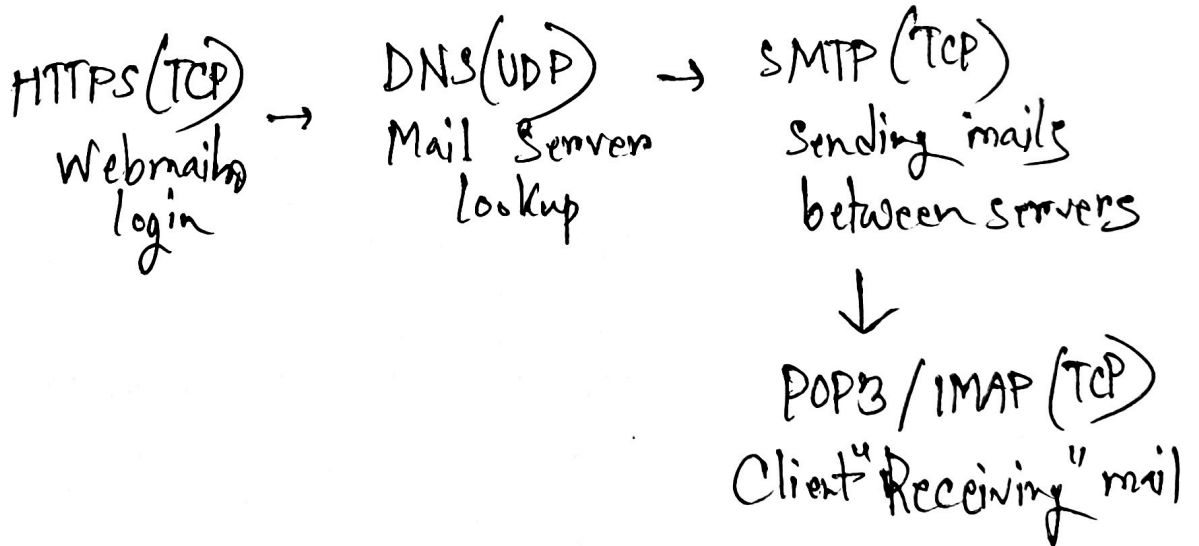 HTTPS (TCP) →
Webmail
login
DNS (UDP) →
Mail Server
lookup
SMTP (TCP)
Sending mails
between servers
↓
POP3 / IMAP (TCP)
Client "Receiving" mail